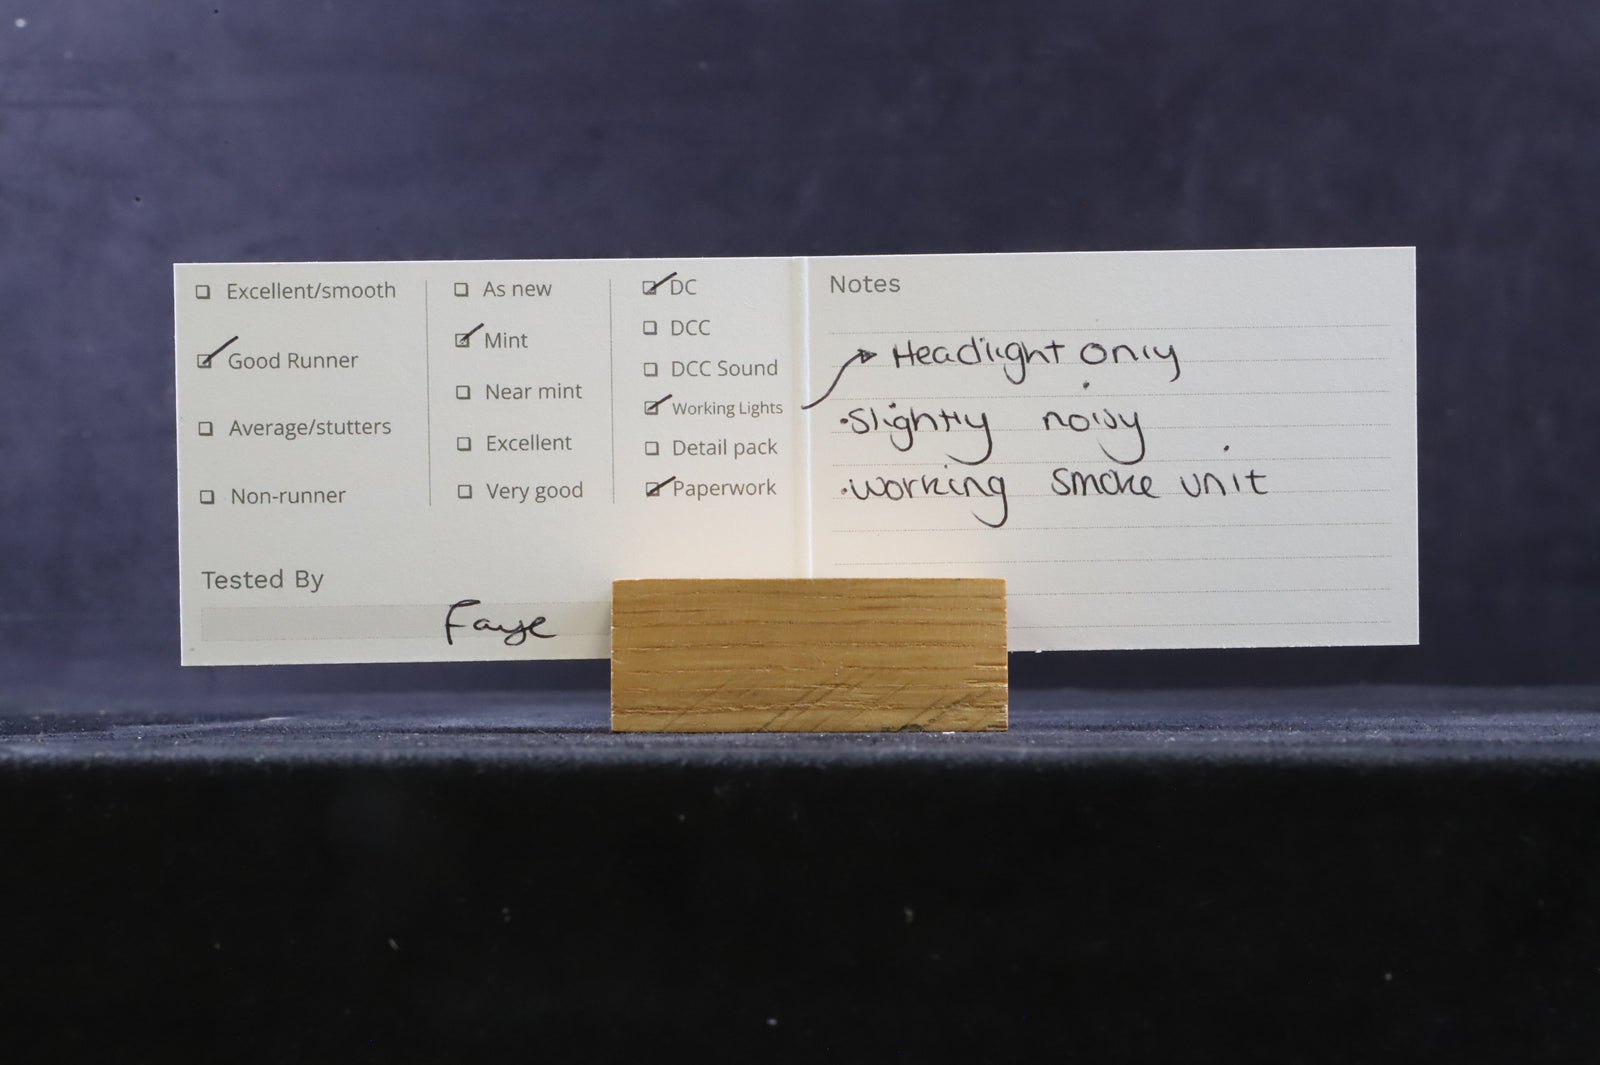 Excellent/smooth
Good Runner
Average/stutters
Non-runner
As new
Mint
Near mint
Excellent
Very good
DC
DCC
DCC Sound
Working Lights
Detail pack
Paperwork
Tested By
Faye
Notes
Headlight only
•Slightly noisy
•Working smoke unit